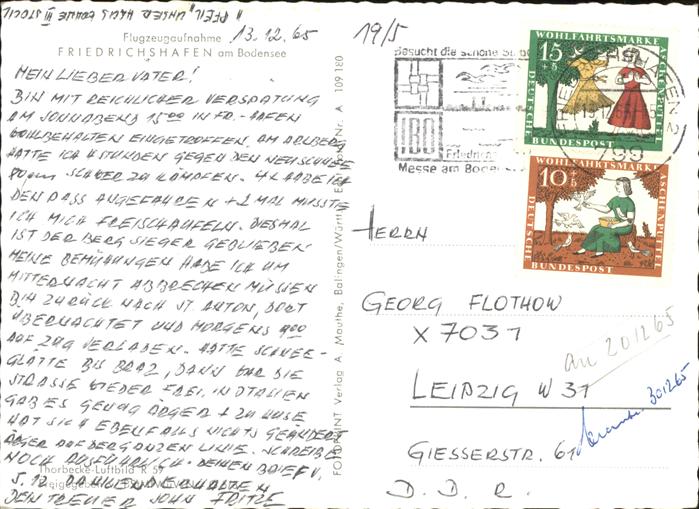 "PFEIL" UNSER HAUS
Flugzeugaufnahme 13.12.65
FRIEDRICHSHAFEN am Bodensee
MEIN LIEBER VATER!
BIN MIT REICHLICHER VERSPÄTUNG
AM SONNABEND 15 00 IN FR.-HAFEN
WOHLBEHALTEN EINGETROFFEN. AM ARLBERG
HATTE ICH 4 STUNDEN GEGEN DEN NEUSCHNEE
80cm SCHWER ZU KÄMPFEN. 4 X HABE ICH
DEN PASS ANGEFAHREN + 2 MAL MUSSTE
ICH MICH FREISCHAUFELN. DIESMAL
IST DER BERG SIEGER GEBLIEBEN
MEINE BEMÜHUNGEN HABE ICH UM
MITTERNACHT ABBRECHEN MÜSSEN
BIN ZURÜCK NACH ST. ANTON, DORT
ÜBERNACHTET UND MORGENS 900
AUF ZUG VERLADEN. HATTE SCHNEE-
GLÄTTE BIS BRAZ, DANN WAR DIE
STRASSE WIEDER FREI. IN ITALIEN
GAB ES GENUG ÄRGER + ZU HAUSE
HAT SICH EBENFALLS NICHTS GEÄNDERT
ÄRGER AUF DER GANZEN LINIE. SCHREIBE
NOCH AUSFÜHRLICH. DEINEN BRIEF V.
Thorbecke-Luftbild R 57
5.12. DANKEND ERHALTEN
DEIN TREUER SOHN FRITZE
FOTOPRINT Verlag A. Mauthe, Balingen/Württ. Best.-Nr. A 109 180
19/5
Besucht die schöne St
IBO
Friedrich
Messe am Bodensee
799
15+5
WOHLFAHRTSMARKE
ASCHENPUTTEL
DEUTSCHE
BUNDESPOST
10+5
WOHLFAHRTSMARKE
ASCHENPUTTEL
DEUTSCHE
BUNDESPOST
HERRN
GEORG FLOTHOW
X 7031
an 201265
LEIPZIG W 31
301265
GIESSERSTR. 61
D. D. R.